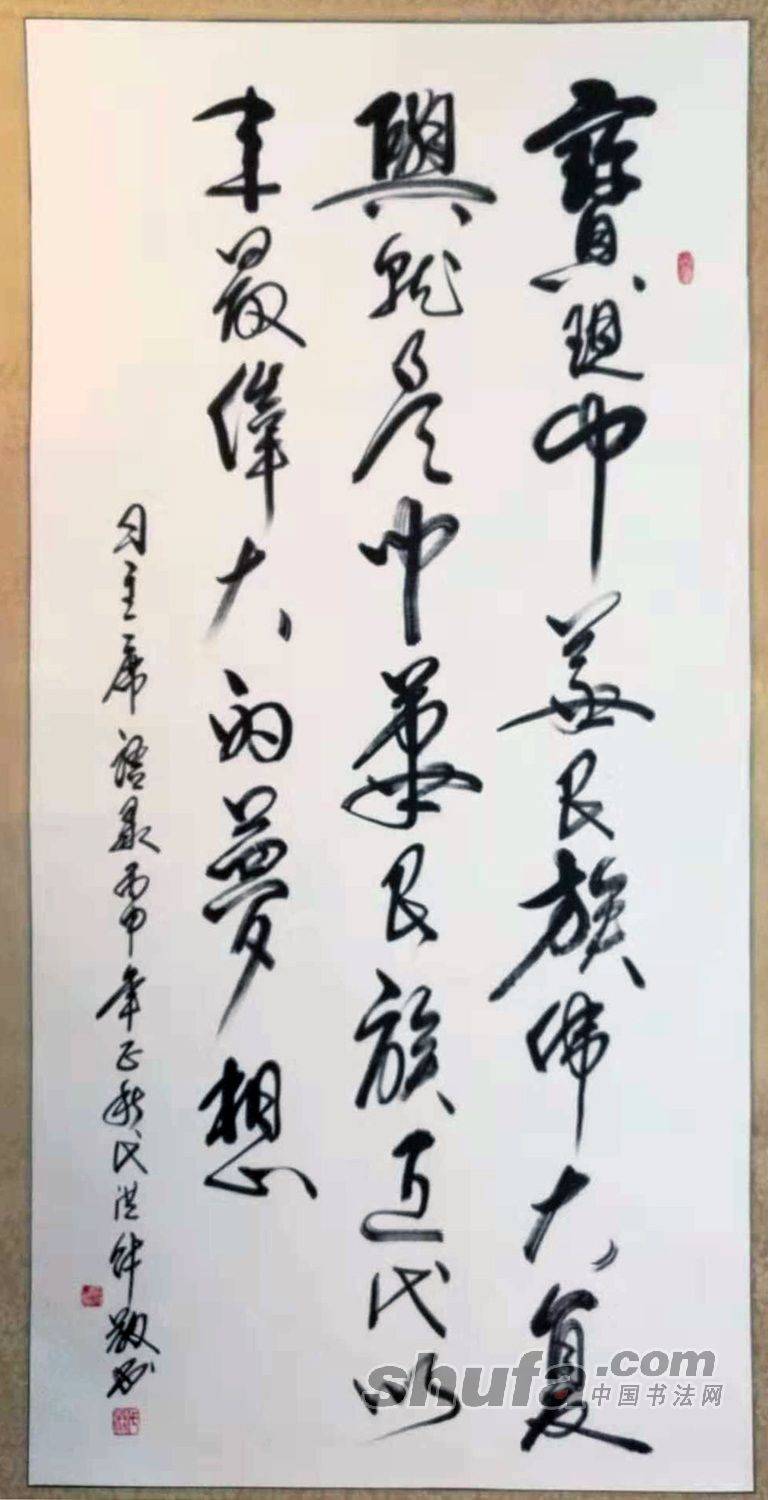 實現中華民族偉大復
興就是中華民族近代以
來最偉大的夢想
習主席語录丙申年正秋氏洪鈡敬书
shufa.com
中国书法网